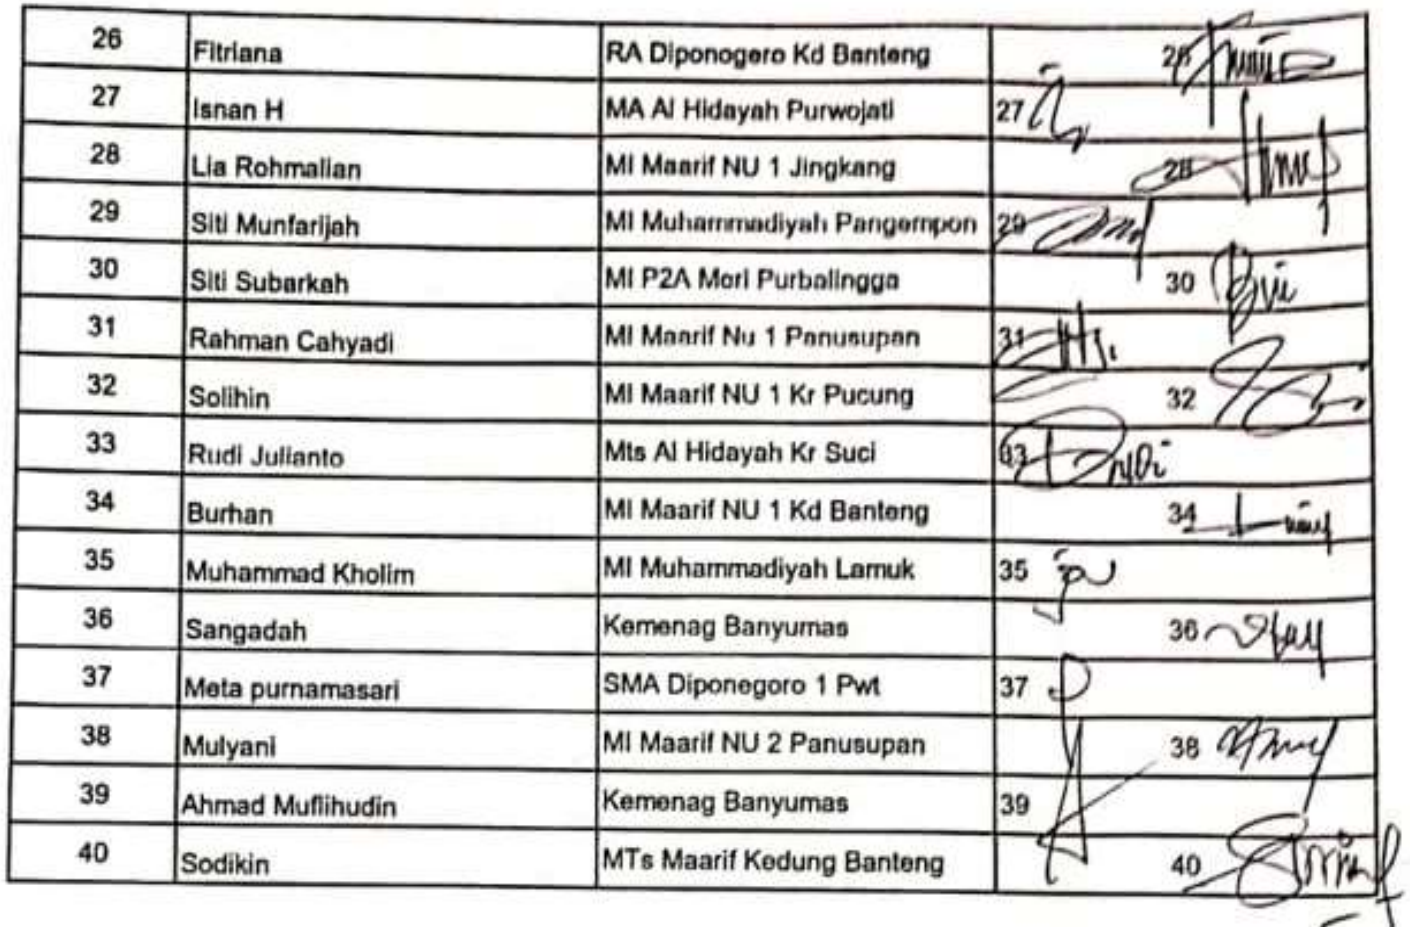 26 Fitriana RA Diponogero Kd Banteng 26
27 Isnan H MA Al Hidayah Purwojati 27
28 Lia Rohmalian MI Maarif NU 1 Jingkang 28
29 Siti Munfarijah MI Muhammadiyah Pangempon 29
30 Siti Subarkah MI P2A Meri Purbalingga 30
31 Rahman Cahyadi MI Maarif Nu 1 Panusupan 31
32 Solihin MI Maarif NU 1 Kr Pucung 32
33 Rudi Julianto Mts Al Hidayah Kr Suci 33
34 Burhan MI Maarif NU 1 Kd Banteng 34
35 Muhammad Kholim MI Muhammadiyah Lamuk 35
36 Sangadah Kemenag Banyumas 36
37 Meta purnamasari SMA Diponegoro 1 Pwt 37
38 Mulyani MI Maarif NU 2 Panusupan 38
39 Ahmad Muflihudin Kemenag Banyumas 39
40 Sodikin MTs Maarif Kedung Banteng 40